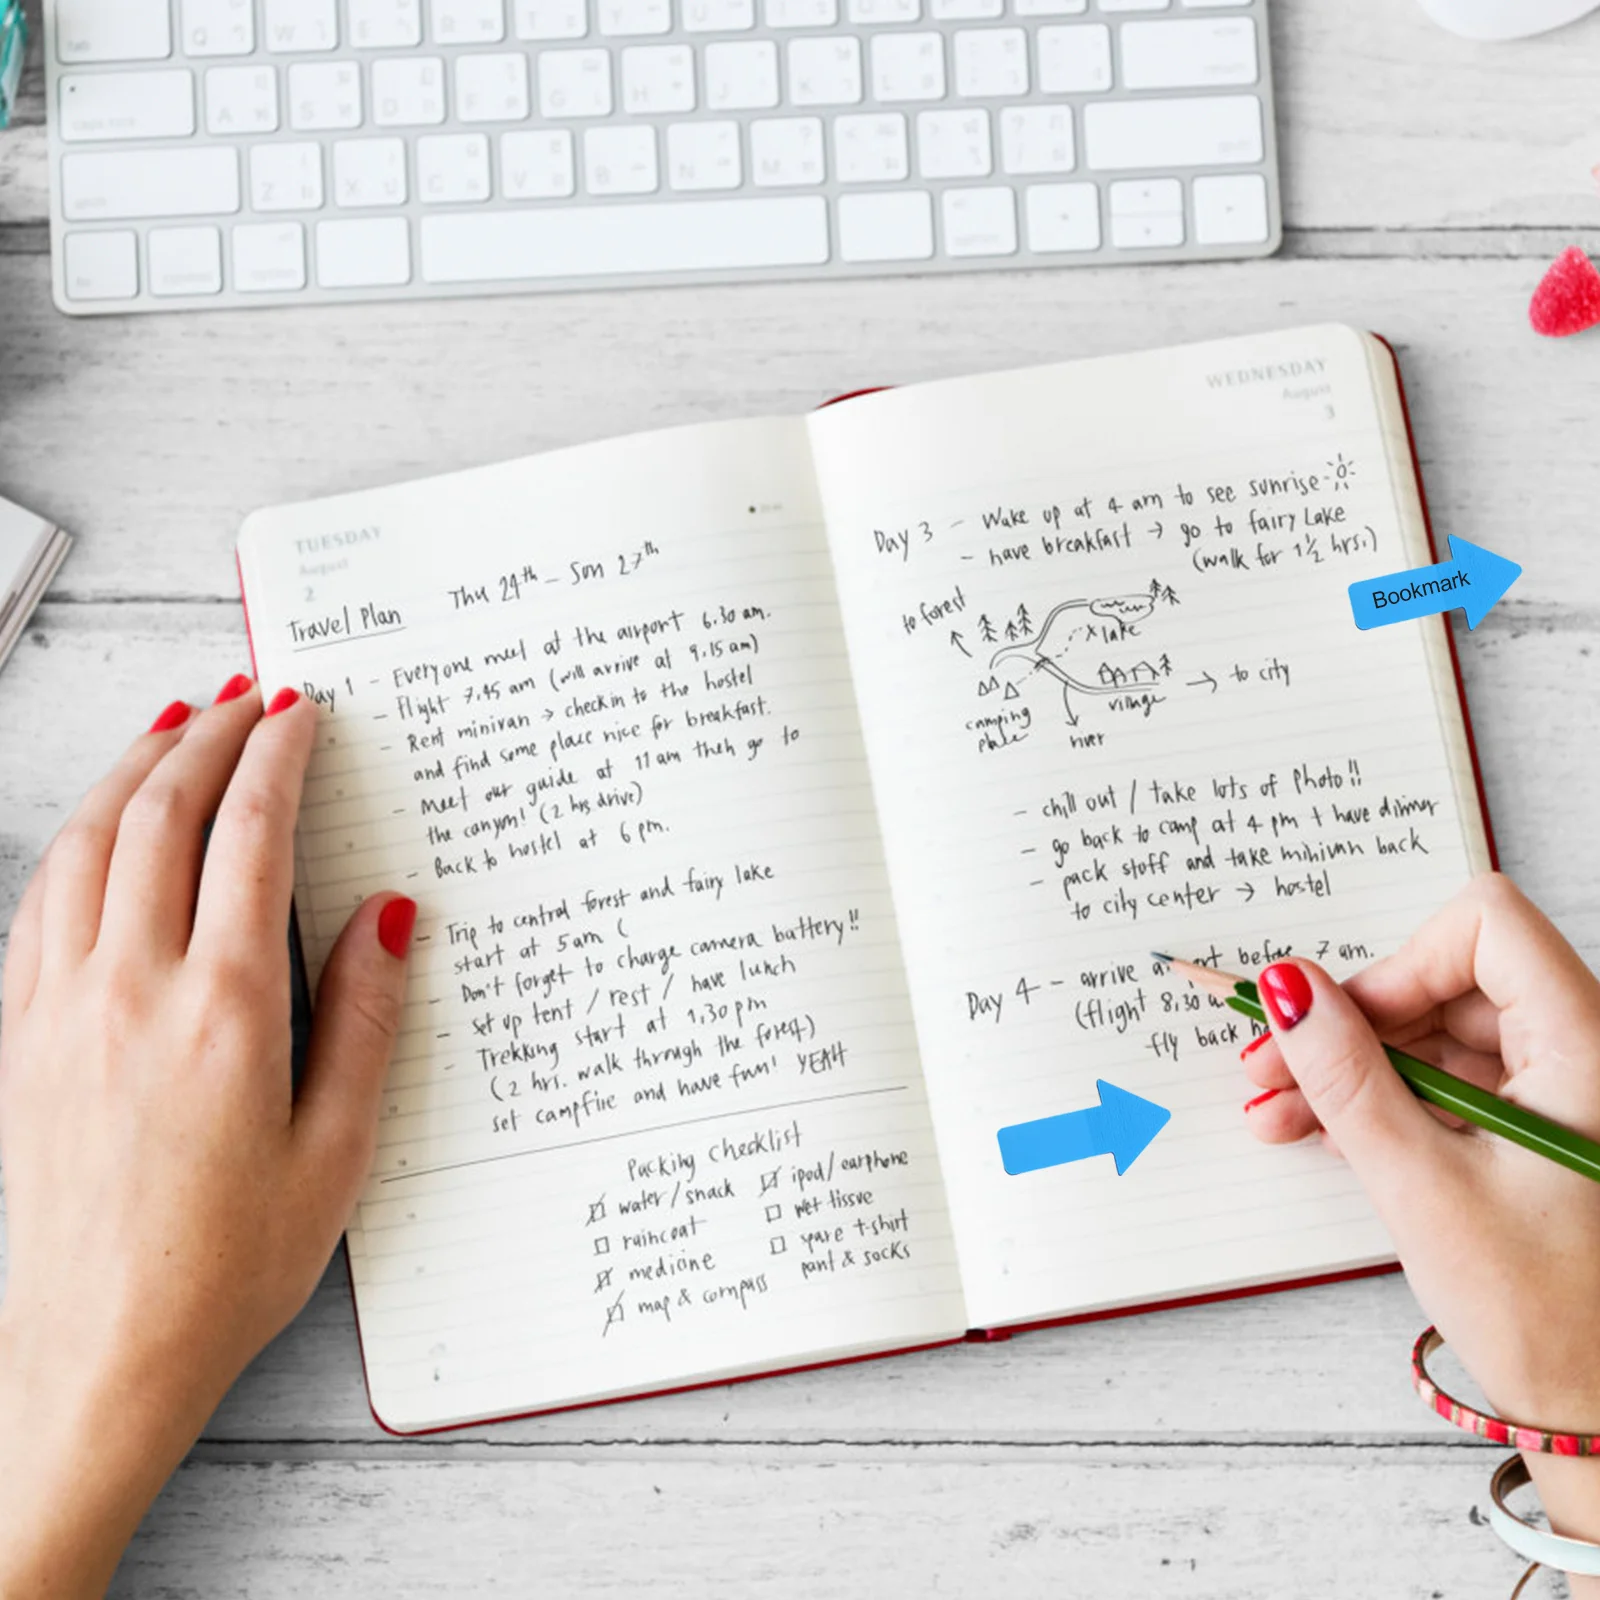 TUESDAY
August
2
Thu 24th - Sun 27th
Travel Plan
Day 1 - Everyone meet at the airport 6.30 am.
- Flight 7.45 am (will arrive at 9.15 am)
- Rent minivan → checkin to the hostel
and find some place nice for breakfast.
- Meet our guide at 11 am then go to
the canyon! (2 hrs drive)
- Back to hostel at 6 pm.
- Trip to central forest and fairy lake
start at 5 am (
- Don't forget to charge camera battery!!
- set up tent / rest / have lunch
- Trekking start at 1,30 pm
(2 hrs. walk through the forest)
set campfire and have fun! YEAH
Packing Checklist
water / snack
raincoat
medicine
map & compass
ipod / earphone
wet tissue
spare t-shirt
pant & socks
WEDNESDAY
August
3
Day 3 - Wake up at 4 am to see sunrise
- have breakfast → go to fairy Lake
(walk for 1 1/2 hrs.)
to forest
x lake
camping
place
village
→ to city
river
- chill out / take lots of photo!!
- go back to camp at 4 pm + have dinner
- pack stuff and take minivan back
to city center → hostel
Day 4 - arrive before 7 am.
(flight 8,30
fly back
Bookmark
Q
W
E
R
T
Y
U
A
S
D
F
G
H
J
K
L
Z
X
C
V
B
N
M